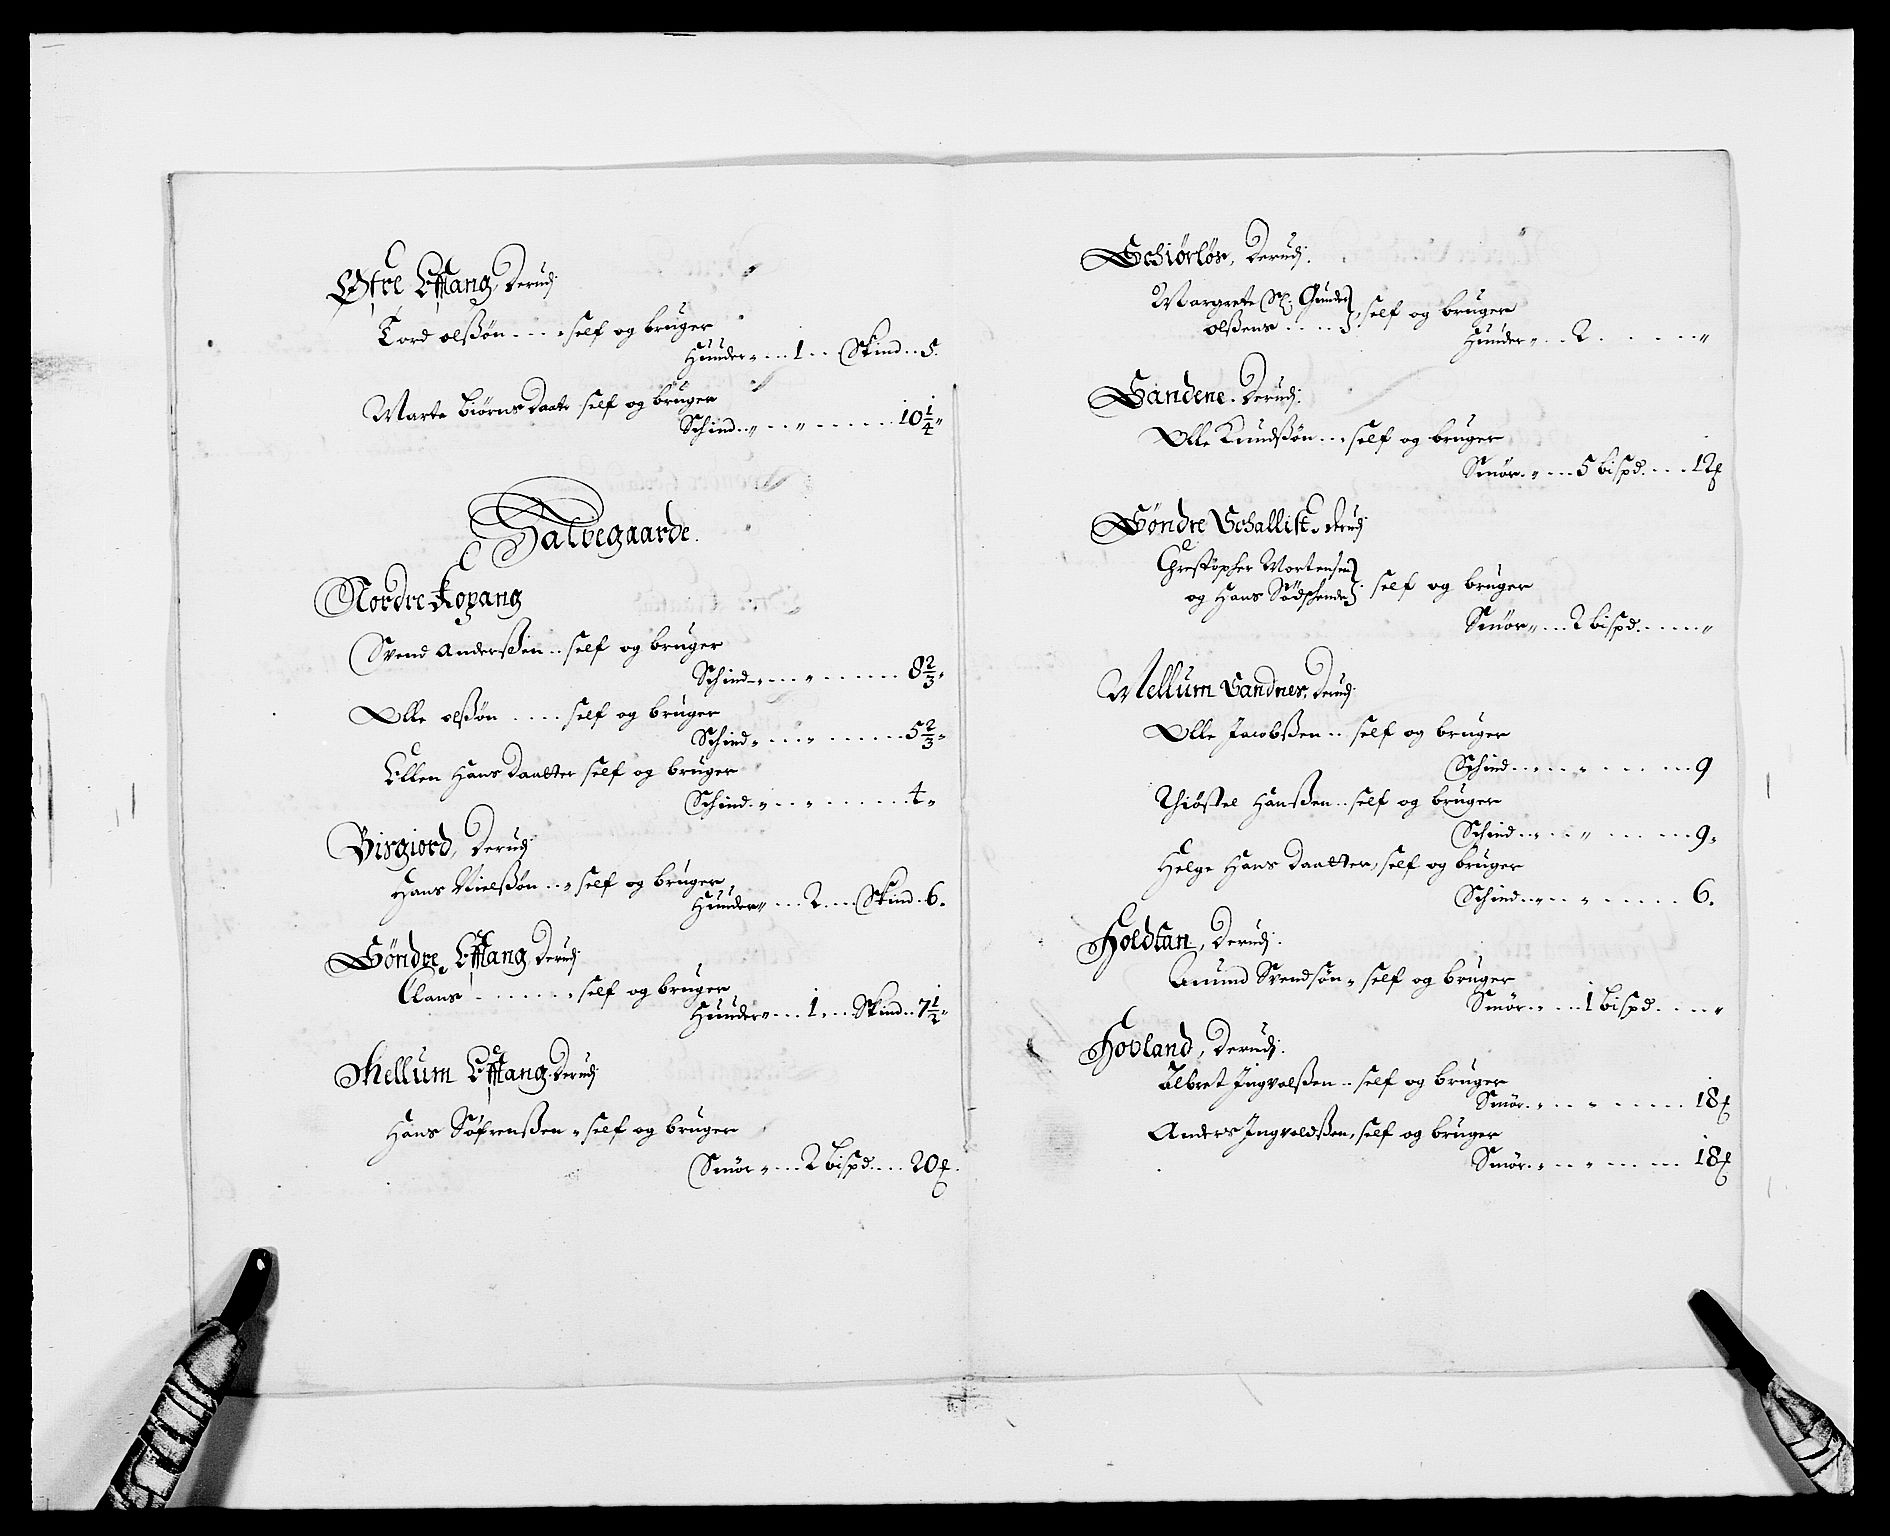 Østre Effang, Derudj
Tord olßøn . . . self og bruger
Huuder „ . . 1 . . Skind . . 5.
Marte Biørns Daater self og bruger
Schind . . „ . . „ . . . . . 10 1/4 „
Halvegaarde.
Nordre Kopang
Svend Anderßen . . self og bruger
Schind „ . . . „ . . . . . 8 2/3 „
Olle olßøn . . . . self og bruger
Schind „ . . . „ . . . . . 5 2/3 „
Ellen Hans Daatter self og bruger
Schind . „ . . „ . . . . . 4 „
Bisgiord, Derudj
Hans Nielßøn . . „ self og bruger
Huuder „ . . . 2 . . . Skind . 6 „
Søndre Effang, Derudj
Clans . . . . . . „ self og bruger
Huuder „ . . . 1 „ . . Skind . . 7 1/2 „
Mellum Effang Derudj
Hans Søfrenßen „ self og bruger
Smør „ . . . 2 bispd . . . 20 ℔.
Schiørløs, Derudj.
Margrete Sl: Gunder
olßens . . . . , self og bruger
Huuder „ . . 2 . . . . . . „
Sandene. Derudj.
Olle Knudßøn . . . self og bruger
Smør . „ . . . 5 bispd. . . . 12 ℔
Søndre Schallist. Derudj
Chrestopher Mortensen
og Hans . self og bruger
Smør „ . . . 2 bispd. . . . . „
Mellum Sandnes, Derudj
Olle Jacobßen . . self og bruger
Schind . . „ . . „ . . . . . 9
Thiøstel Hanßen . . self og bruger
Schind . . „ . . „ . . . . . 9 „
Helge Hans Daatter, self og bruger
Schind . . „ . . „ . . . . . 6.
Holdtan, Derudj.
Amund Svendsøn „ self og bruger
Smør . „ . . . 1 bispd . . . . „
Hovland, Derudj.
Albret Jngvolßen . . self og bruger
Smør . „ . . . „ . . . . . 18 ℔
Anders Jngvoldßen, self og bruger
Smør . „ . . „ . . . . . 18 ℔